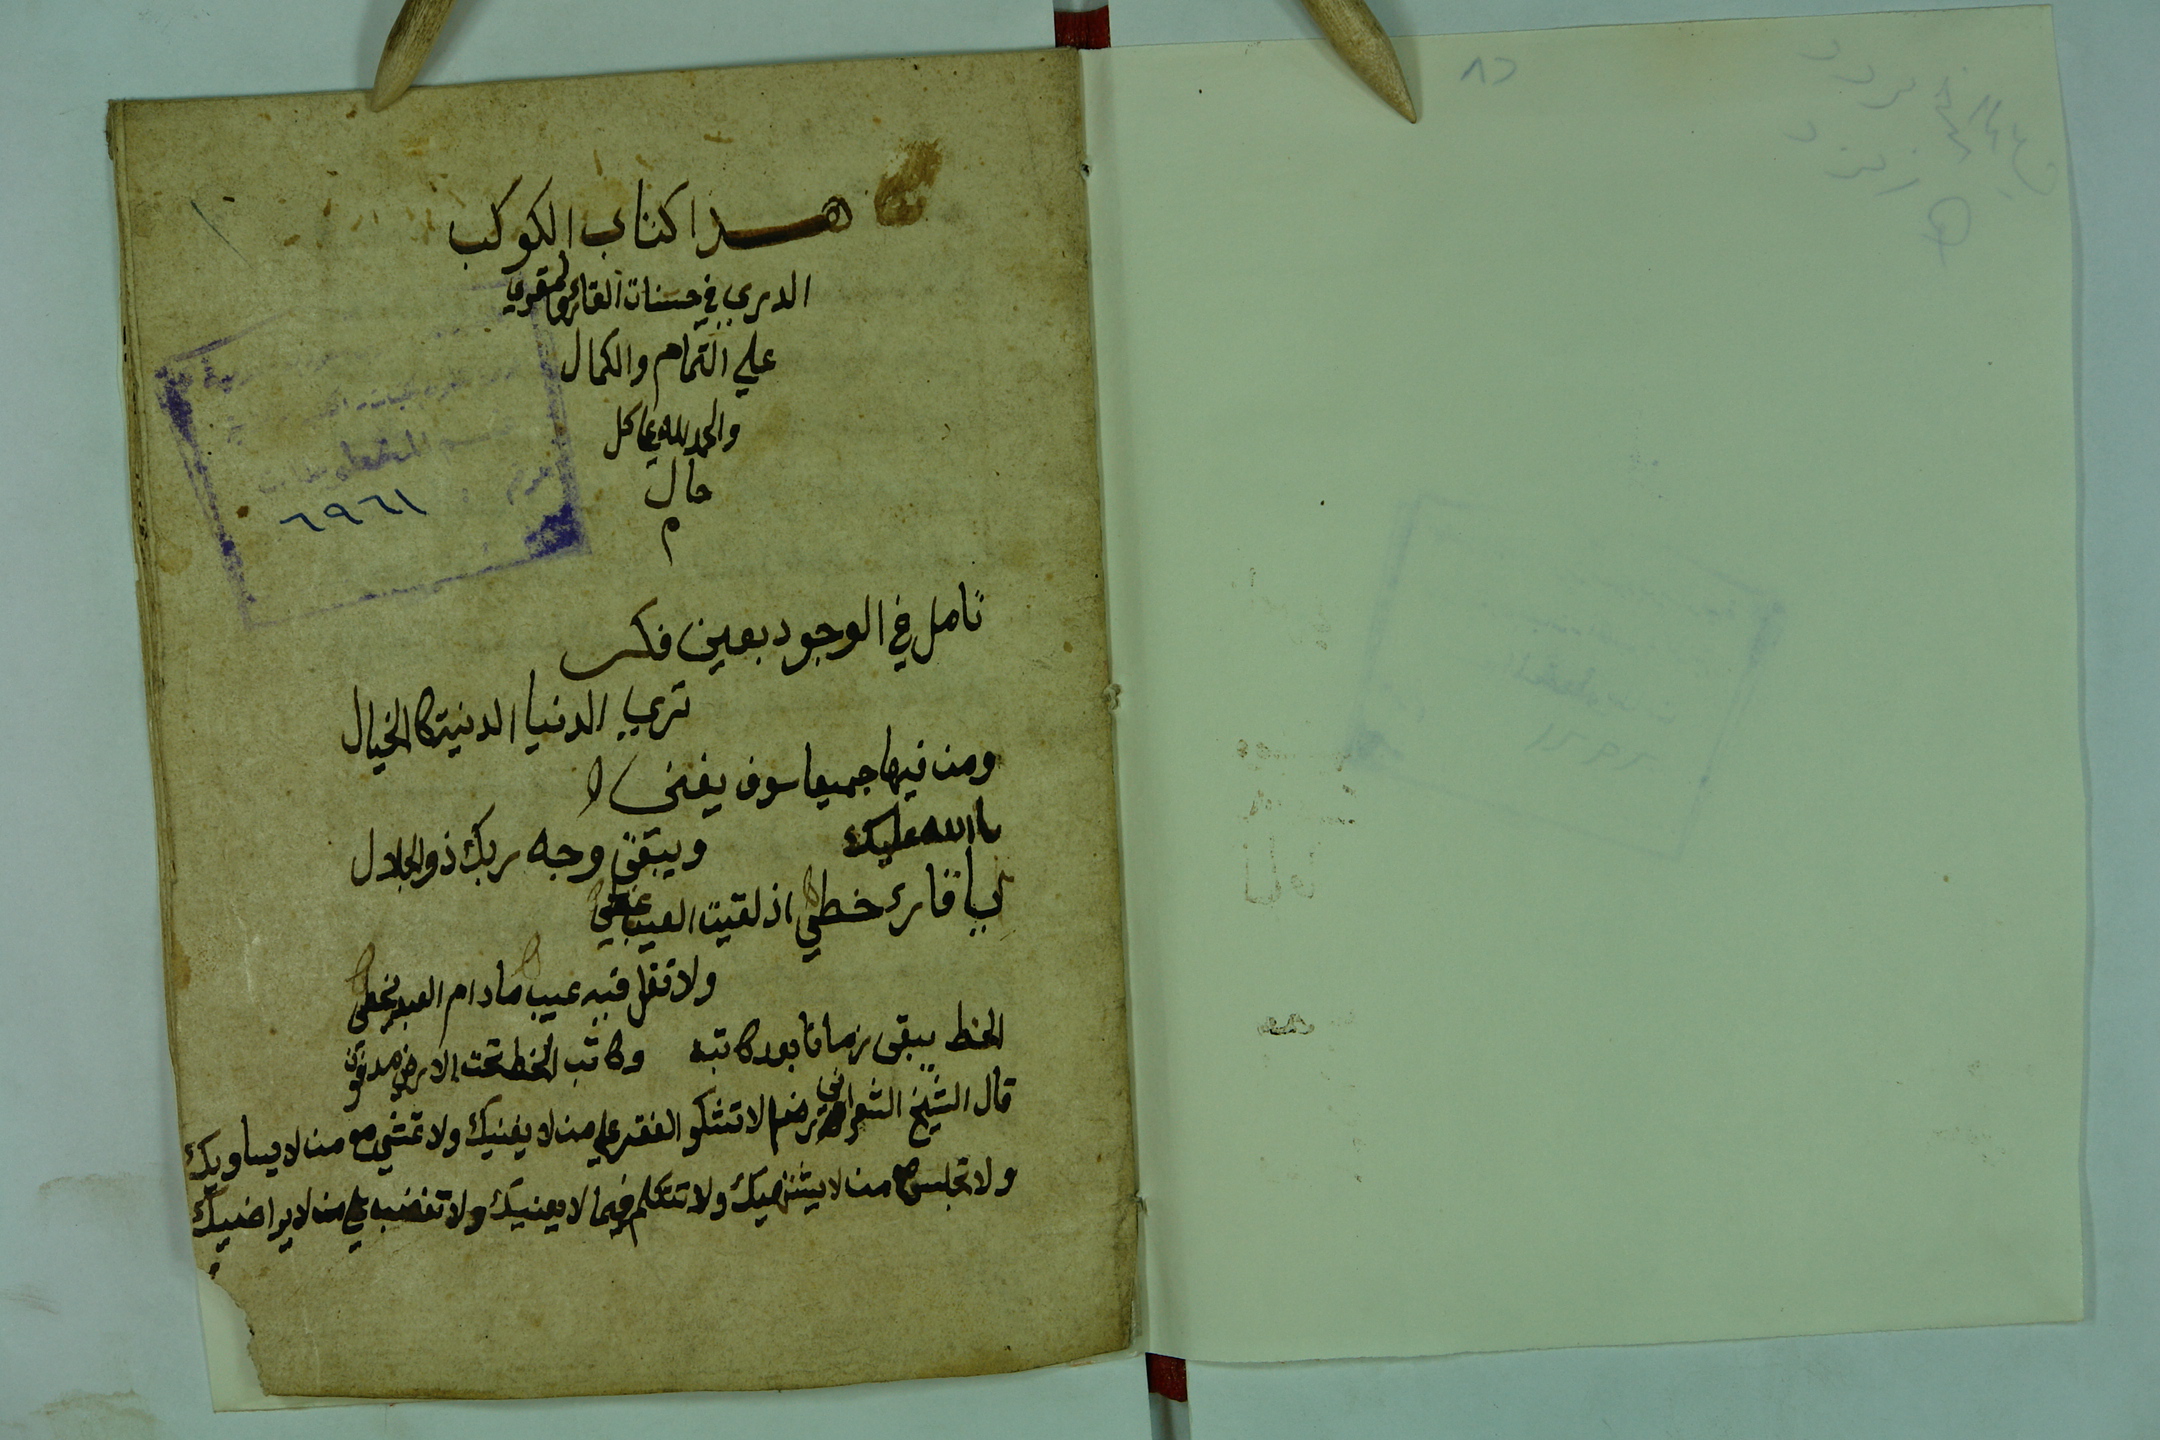 هذا كتاب الكوكب
الدري في حسنات القائر والمقري
علي التمام والكمال
والحمد لله علي كل
حال
م
تامل في الوجود بعين فكر
تري الدنيا الدنيتكا الخيال
ومن فيها جميعا سوف يفنى
ويبقى وجه ربك ذو الجلال
باالله عليك
يا قارئ خطي اذ لقيت العيب غطي
ولا تقل فيه عيب ما دام العبد يخطي
الخط يبقى زمانا بعد كاتبه وكاتب الخط تحت الارض مدفون
قال الشيخ الشعراني لا تشكو الفقر علي من لا يغنيك ولا تمشي مع من لا يساويك
ولا تجلس مع من لا يشتهيك ولا تتكلم فيما لا يعنيك ولا تغضب علي من لا يراضيك
قسم المخطوطات
رقم :
٦٩٦١
٨٢